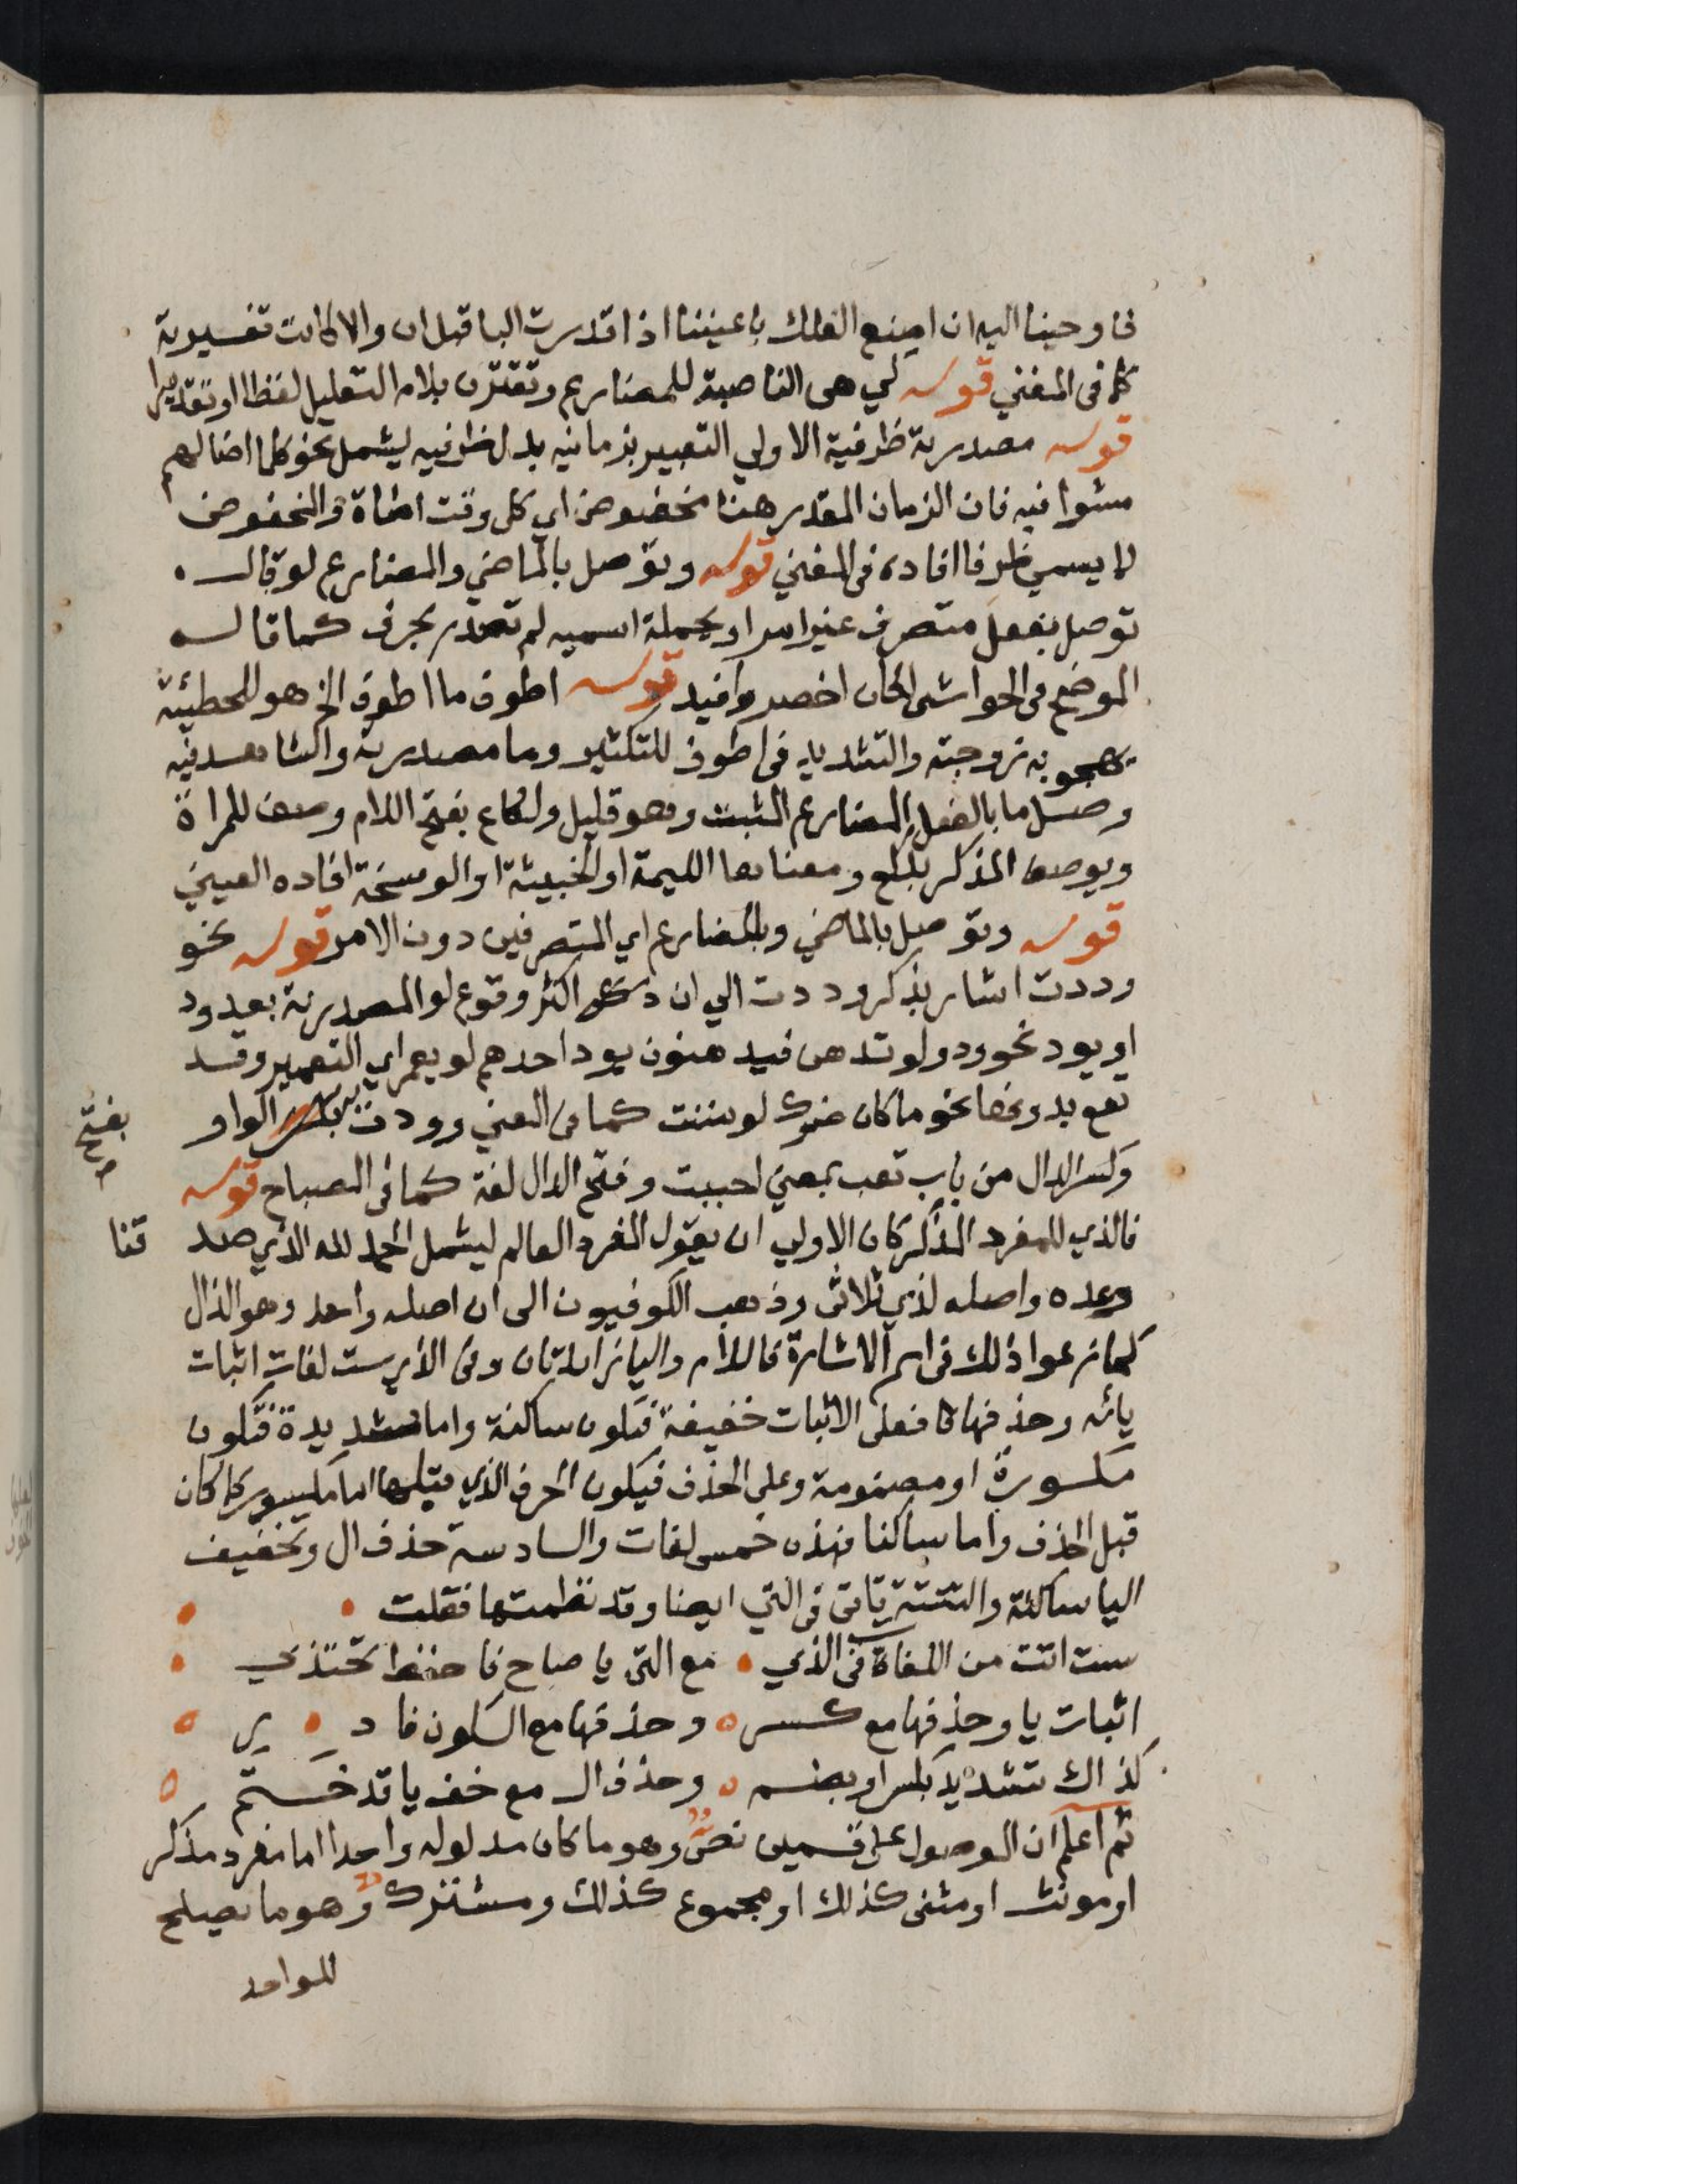 فاوحينا اليه ان اصنع الفلك باعيننا اذا قدرت البا قبل ان والا كانت تفسيرية
كما فى المغني قوله كي هى الناصبة للمضارع وتقترن بلام التعليل لفظا او تقديرا
قوله مصدرية ظرفية الاولي التعبير بزمانيه بدل ظرفيه ليشمل نحو كلما اضالهم
مشوا فيه فان الزمان المقدر هنا مخفوض اي كل وقت اضاة والمخفوض
لا يسمي ظرفا افاده فى المغني قوله وتوصل بالماضي والمضارع لو قال
توصل بفعل متصرف غير امر او بجملة اسميه لم تصدر بحرف كما قاله
الموضح فى الحواشى لكان اخصر وافيد قوله اطوف ما اطوف الخ هو للحطيئة
يهجو به زوجته والتشديد فى اطوف للتكثير وما مصدرية والشاهد فيه
وصل ما بالفعل المضارع المثبت وهو قليل ولكاع بفتح اللام وصف للمراة
ويوصف المذكر بلكع ومعناها اللئيمة او الخبيثة او الوسخة افاده العيني
قوله وتوصل بالماضي وبالمضارع اي المتصرفين دون الامر قوله نحو
وددت اشار بذكر وددت الي ان اكثر وقوع لو المصدرية بعد ود
او يود نحو ودوا لو تدهن فيدهنون يود احدهم لو يعمر اي التعمير وقد
تقع بدونهما نحو ما كان ضرك لو مننت كما فى المغني وودت الواو
بفتح
صح
وكسر الدال من باب تعب بمعني احببت وفتح الدال لغة كما فى المصباح قوله
فالذي للمفرد المذكر كان الاولي ان يقول المفرد العالم ليشمل الحمد لله الذي صد
قنا
وعده واصله لذي ثلاثى وذهب الكوفيون الى ان اصله واحد وهو الذال
كما زعموا ذلك فى اسم الاشارة فاللام واليا زائدتان وفى الذي ست لغات اثبات
يائه وحذفها فعلى الاثبات خفيفة فتكون ساكنة واما شديدة فتكون
مكسورة او مضمومة وعلى الحذف فيكون الحرف الذي قبلها اما مكسور كما كان
قبل الحذف واما ساكنا فهذه خمس لغات والسادسة حذف ال وتخفيف
اليا ساكنة والستة تاتى فى التي ايضا وقد نظمتها فقلت
ست اتت من اللغاة فى الذي مع التى يا صاح فاحفظ تحتذي
اثبات يا وحذفها مع كسر وحذفها مع السكون فادر
كذاك تشديد بكسر او بضم وحذف ال مع خف يا قد ختم
ثم اعلم ان الموصول على قسمين نص وهو ما كان مدلوله واحدا اما مفرد مذكر
او مونث او مثنى كذلك او مجموع كذلك ومشترك وهو ما يصلح
للواحد